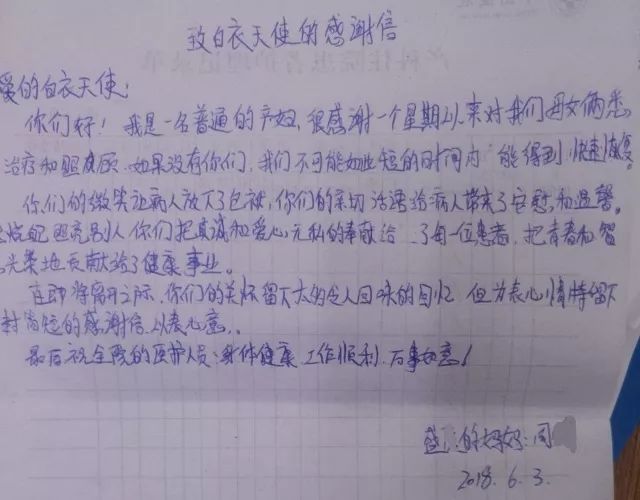 致白衣天使的感谢信
爱的白衣天使:
你们好!我是一名普通的产妇,很感谢一个星期以来对我们母女俩悉
治疗和照顾,如果没有你们,我们不可能如此短的时间内 能得到快速恢复。
你们的微笑让病人放下了包袱,你们的亲切话语给病人带来了安慰和温馨。
烧自己照亮别人,你们把真诚和爱心无私的奉献给了每一位患者,把青春和智
光荣地贡献给了健康事业。
在即将离开之际,你们的关怀留下太多的令人回味的回忆,但为表心情特留下
封简短的感谢信,以表心意。
最后祝全院的医护人员:身体健康 工作顺利,万事如意!
盛 的妈妈:周
2018.6.3.